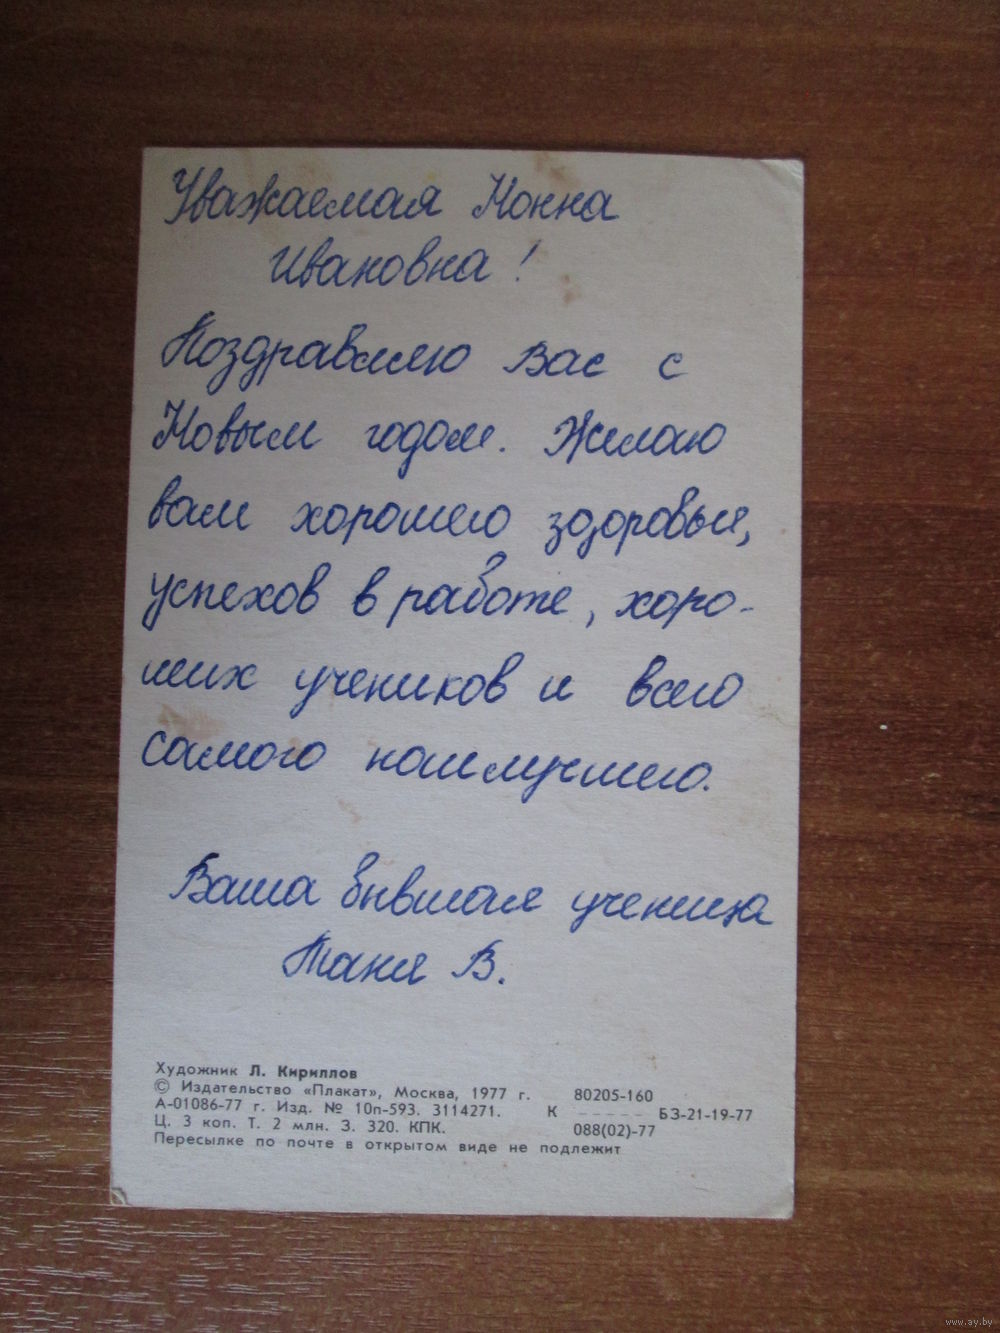 Уважаемая Нонна
Ивановна!
Поздравляю Вас с
Новым годом. Желаю
вам хорошего здоровья,
успехов в работе, хоро-
ших учеников и всего
самого наилучшего.
Ваша бывшая ученица
Таня В.
Художник Л. Кириллов
© Издательство «Плакат», Москва, 1977 г.
А-01086-77 г. Изд. № 10п-593. 3114271.
Ц. 3 коп. Т. 2 млн. З. 320. КПК.
80205-160
К ------ БЗ-21-19-77
088(02)-77
Пересылке по почте в открытом виде не подлежит
www.ay.by